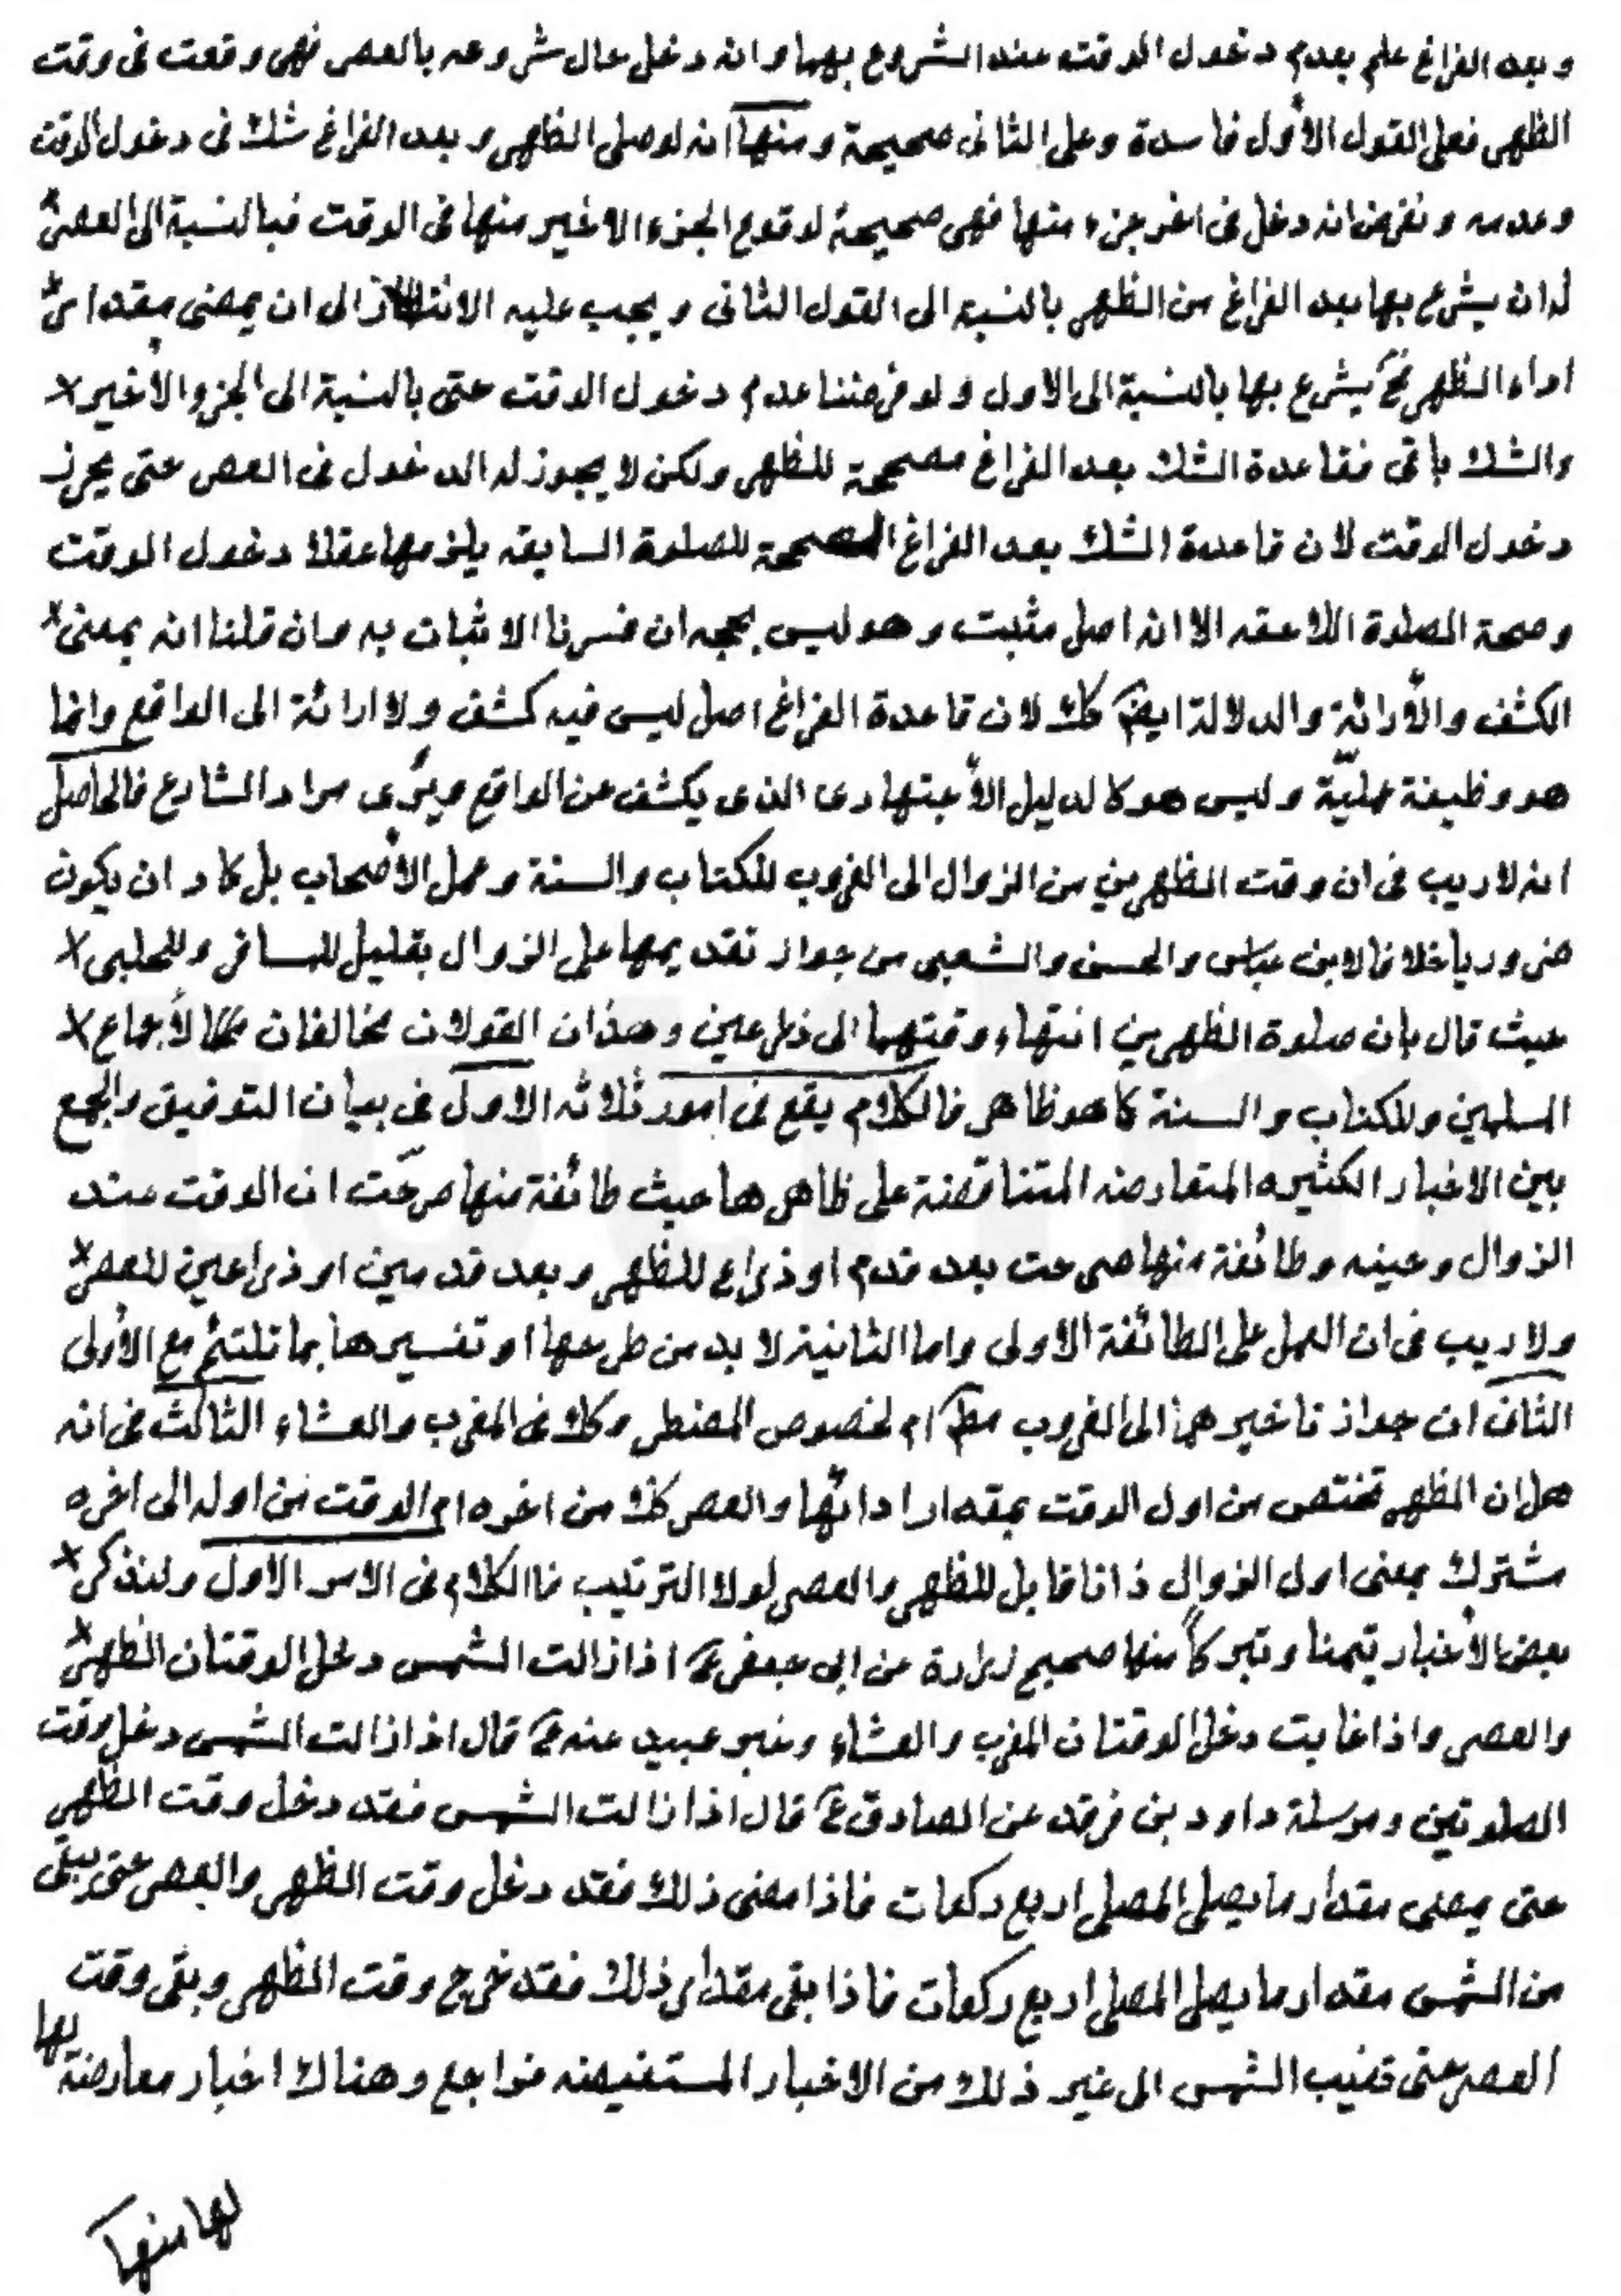 وبعد الفراغ علم بعدم دخول الوقت عند الشروع بهما وانه دخل حال شروعه بالعصر فهى وقعت فى وقت
الظهر فعلى القول الأول فاسدة وعلى الثانى صحيحة ومنها انه لو صلى الظهر وبعد الفراغ شك فى دخول الوقت
وعدمه ونفرض انه دخل فى اخر جزء منها فهى صحيحة لوقوع الجزء الاخير منها فى الوقت فبالنسبة الى العصر
له ان يشرع بها بعد الفراغ من الظهر بالنسبة الى القول الثانى ويجب عليه الانتظار الى ان يمضى مقدار
اداء الظهر فح يشرع بها بالنسبة الى الاول ولو فرضنا عدم دخول الوقت حتى بالنسبة الى الجزو الأخير
والشك باقى فقاعدة الشك بعد الفراغ مصححة للظهر ولكن لا يجوز له الدخول فى العصر حتى يحرز
دخول الوقت لان قاعدة الشك بعد الفراغ المصححة للصلوة السابقه يلزمها عقلا دخول الوقت
وصحة الصلوة اللاحقه الا انه اصل مثبت وهو ليس بحجه ان فسرنا الاثبات به وان قلنا انه بمعنى
الكشف والأرائة والدلالة ايضً كك لان قاعدة الفراغ اصل ليس فيه كشف ولا ارائة الى الواقع وانما
هو وظيفة عمليّة وليس هو كالدليل الأجتهادى الذى يكشف عن الواقع ويرى مراد الشارع فالحاصل
انه لا ريب فى ان وقت الظهرين من الزوال الى الغروب للكتاب والسنة وعمل الأصحاب بل كاد ان يكون
ضروريا خلافا لابن عباس والحسن والشعبى من جواز تقديمها على الزوال بقليل للمسافر وللحلبى
حيث قال بان صلوة الظهرين انتهاء وقتهما الى ذراعين وهذان القولان مخالفان لأجماع
المسلمين وللكتاب والسنة كما هو ظاهر فالكلام يقع فى امور ثلاثه الاول فى بيان التوفيق والجمع
بين الاخبار الكثيره المتعارضه المتناقضة على ظاهرها حيث طائفة منها صرحّت ان الوقت عند
الزوال وحينه وطائفة منها صرحت بعد قدم او ذراع للظهر وبعد قدمين او ذراعين للعصر
ولا ريب فى ان العمل على الطائفة الاولى واما الثانية لا بد من طرحها او تفسيرها بما تلتئم مع الأولى
الثانى ان جواز تاخيرهما الى الغروب مطً ام لخصوص المضطر وكذا فى المغرب والعشاء الثالث فى انه
هل ان الظهر تختص من اول الوقت بمقدار ادائها والعصر كذلك من اخره ام الوقت من اوله الى اخره
مشترك بمعنى اول الزوال ذاتا قابل للظهر والعصر لولا الترتيب فاالكلام فى الامر الاول ولنذكر
بعض الأخبار تيمنا وتبركاً منها صحيح زرارة عن ابى جعفر ع اذا زالت الشمس دخل الوقتان الظهر
والعصر واذا غابت دخل الوقتان المغرب والعشاء وخبر عبيد عنه ع قال اذا زالت الشمس دخل وقت
الصلوتين ومرسلة داود بن فرقد عن الصادق ع قال اذا زالت الشمس فقد دخل وقت الظهر
حتى يمضى مقدار ما يصلى المصلى اربع ركعات فاذا مضى ذلك فقد دخل وقت الظهر والعصر حتى يبقى
من الشمس مقدار ما يصلى المصلى اربع ركعات فاذا بقى مقدار ذلك فقد خرج وقت الظهر وبقى وقت
العصر حتى تغيب الشمس الى غير ذلك من الاخبار المستفيضه فراجع وهناك اخبار معارضة لها
لها منها